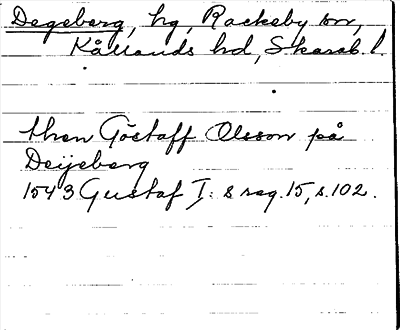 Degeberg, hg, Rackeby sn,
Kållands hd, Skarab. l.
then Göstaff Olsson på
Deijeberg
1543 Gustaf I: s reg. 15, s. 102.